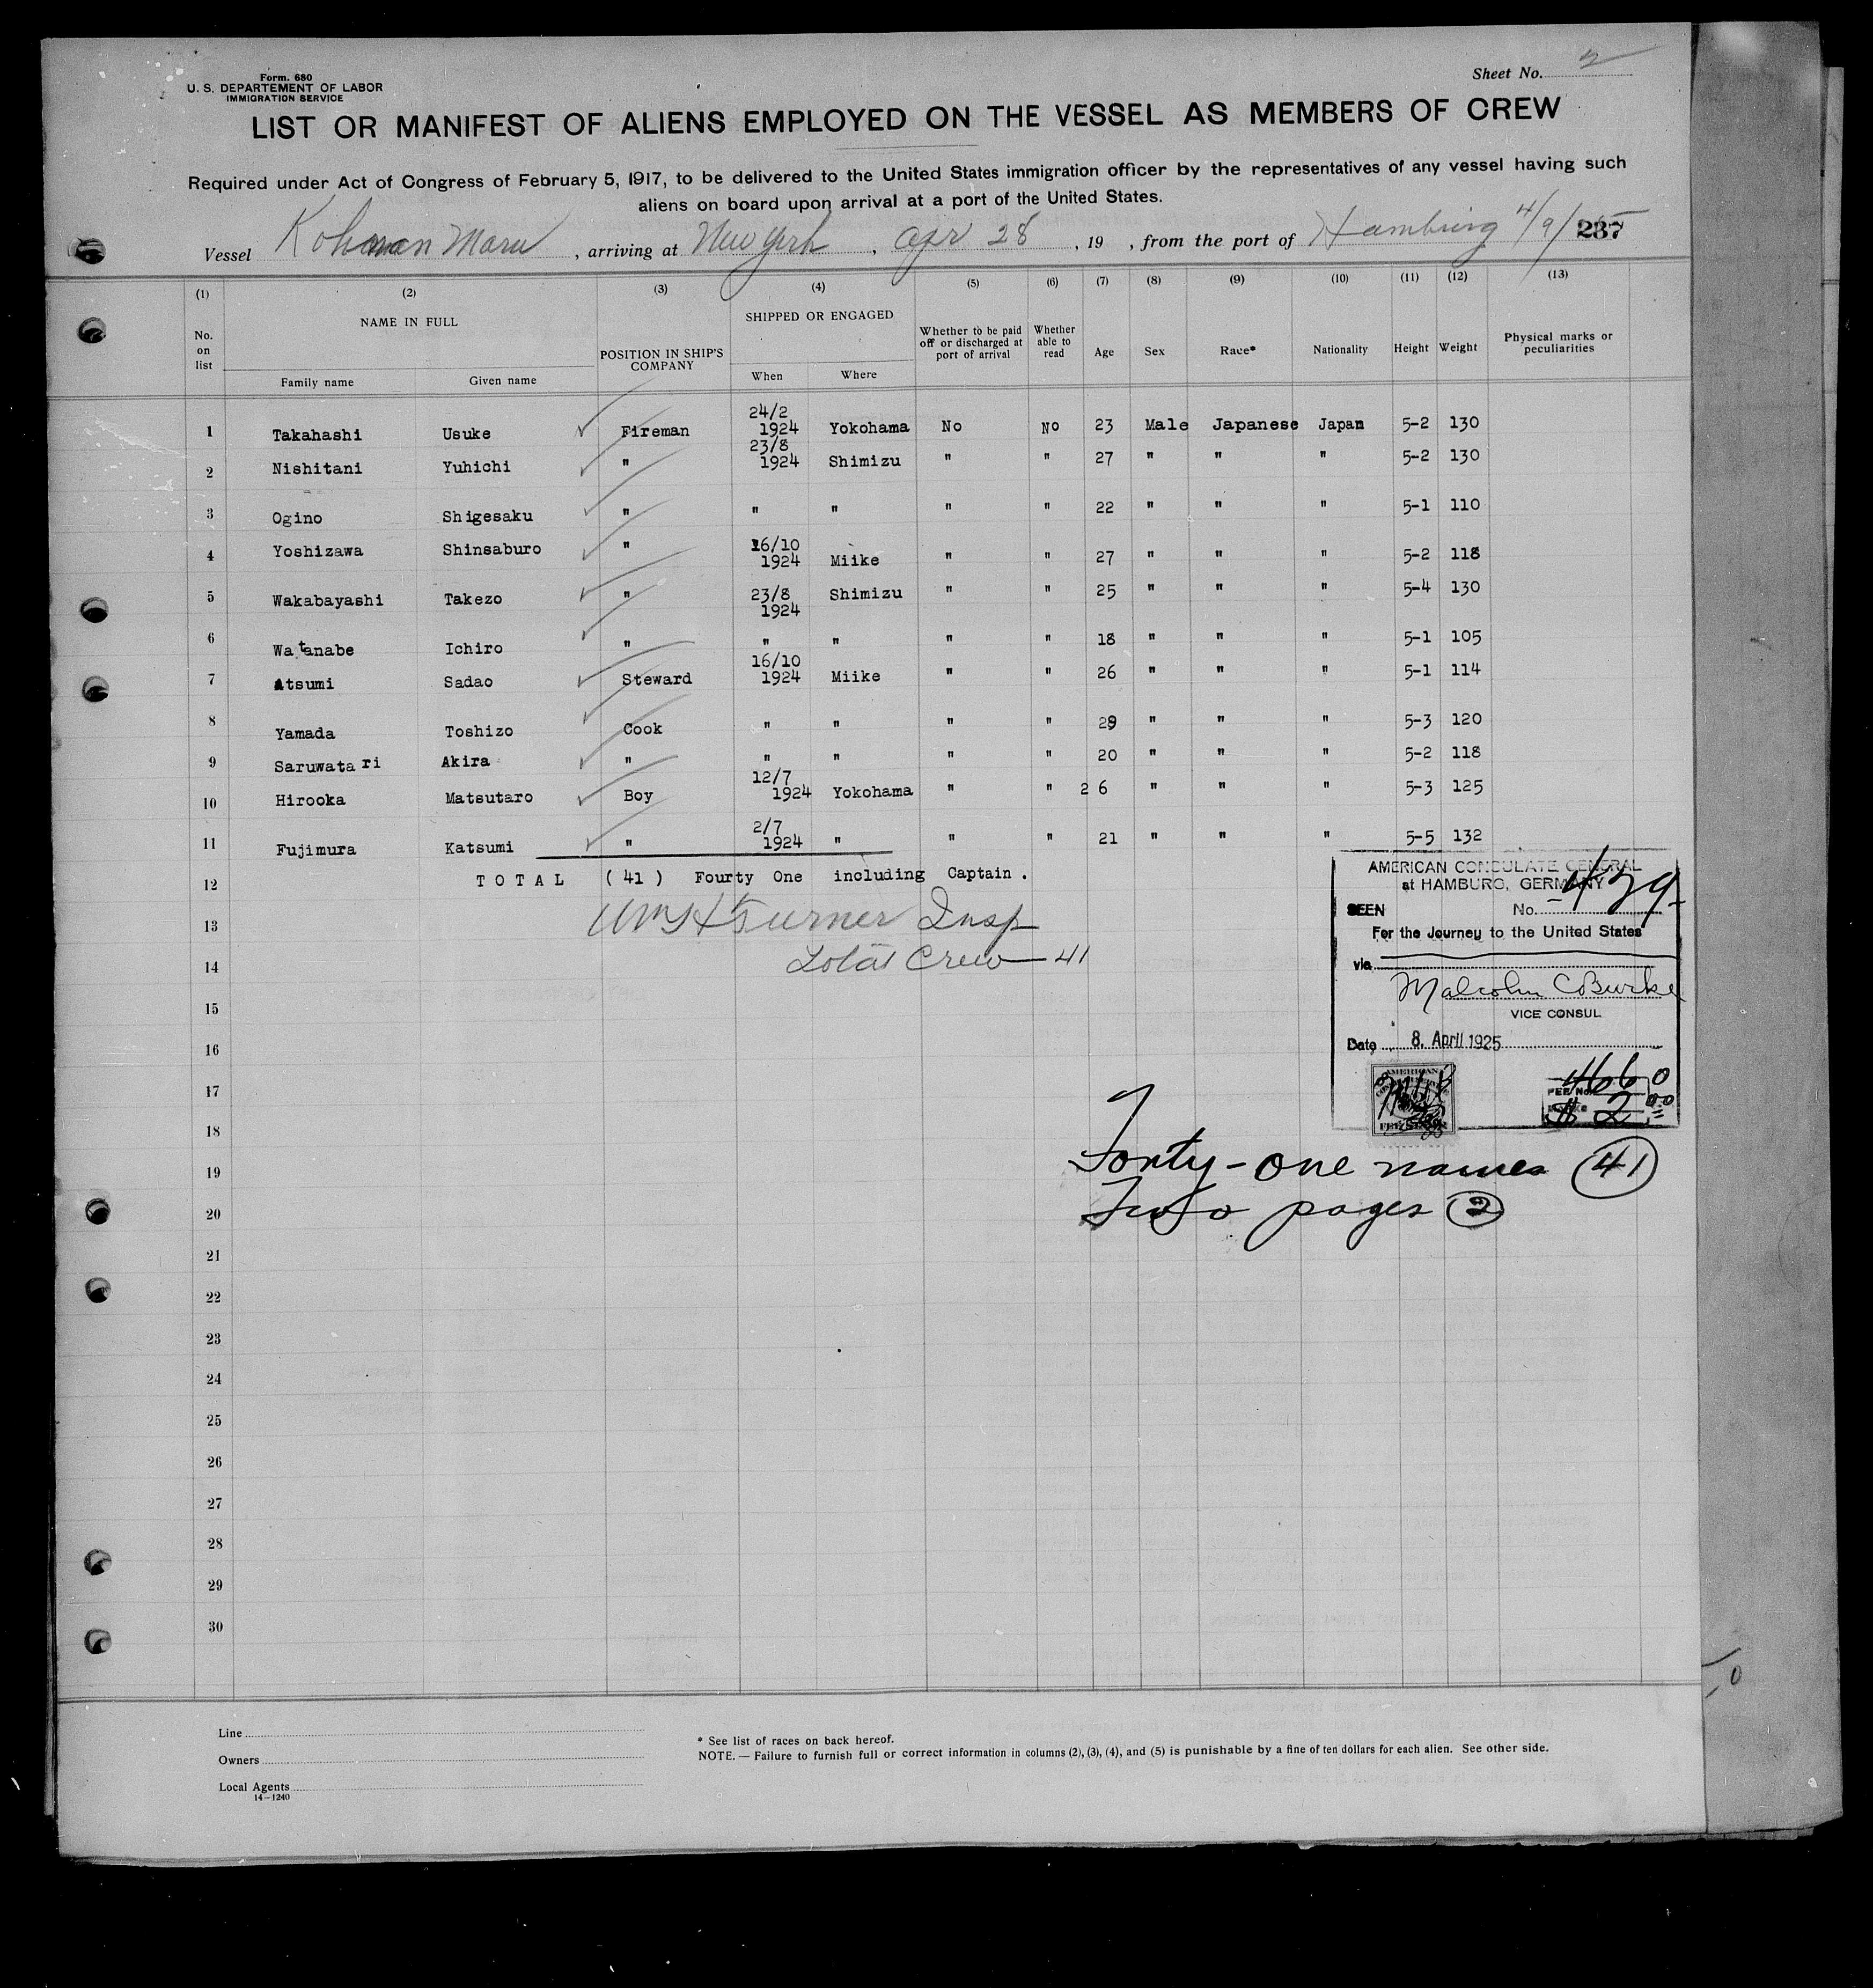 Form. 680
U. S. DEPARTEMENT OF LABOR
IMMIGRATION SERVICE
Sheet No. 2
LIST OR MANIFEST OF ALIENS EMPLOYED ON THE VESSEL AS MEMBERS OF CREW
Required under Act of Congress of February 5, 1917, to be delivered to the United States immigration officer by the representatives of any vessel having such
aliens on board upon arrival at a port of the United States.
Vessel Maru, arriving at New York, Apr 28, 19 , from the port of Hamburg 4/9/ 237
(1) (2) (3) (4) (5) (6) (7) (8) (9) (10) (11) (12) (13)
No. on list NAME IN FULL Family name Given name POSITION IN SHIP'S COMPANY SHIPPED OR ENGAGED When Where Whether to be paid off or discharged at port of arrival Whether able to read Age Sex Race* Nationality Height Weight Physical marks or peculiarities
1 Takahashi Usuke Fireman 24/2 1924 Yokohama No No 23 Male Japanese Japan 5-2 130
2 Nishitani Yuhichi " 23/8 1924 Shimizu " " 27 " " " 5-2 130
3 Ogino Shigesaku " " " " " 22 " " " 5-1 110
4 Yoshizawa Shinsaburo " 16/10 1924 Miike " " 27 " " " 5-2 118
5 Wakabayashi Takezo " 23/8 1924 Shimizu " " 25 " " " 5-4 130
6 Watanabe Ichiro " " " " " 18 " " " 5-1 105
7 Atsumi Sadao Steward 16/10 1924 Miike " " 26 " " " 5-1 114
8 Yamada Toshizo Cook " " " " 29 " " " 5-3 120
9 Saruwatari Akira " " " " " 20 " " " 5-2 118
10 Hirooka Matsutaro Boy 12/7 1924 Yokohama " " 26 " " " 5-3 125
11 Fujimura Katsumi " 2/7 1924 " " " 21 " " " 5-5 132
12 TOTAL (41) Fourty One including Captain.
13 Wm H Turner Insp
14 Total Crew—41
15
16
17
18
19
20
21
22
23
24
25
26
27
28
29
30
AMERICAN CONSULATE GENERAL
at HAMBURG, GERMANY
SEEN No. 439
For the Journey to the United States
via
Malcolm C Burke
VICE CONSUL
Date 8. April 1925
AMERICAN
FEE STAMP
FEE No. 4660
$ 2.00
Forty-one names (41)
Two pages (2)
Line
Owners
Local Agents
14—1240
* See list of races on back hereof.
NOTE.— Failure to furnish full or correct information in columns (2), (3), (4), and (5) is punishable by a fine of ten dollars for each alien. See other side.